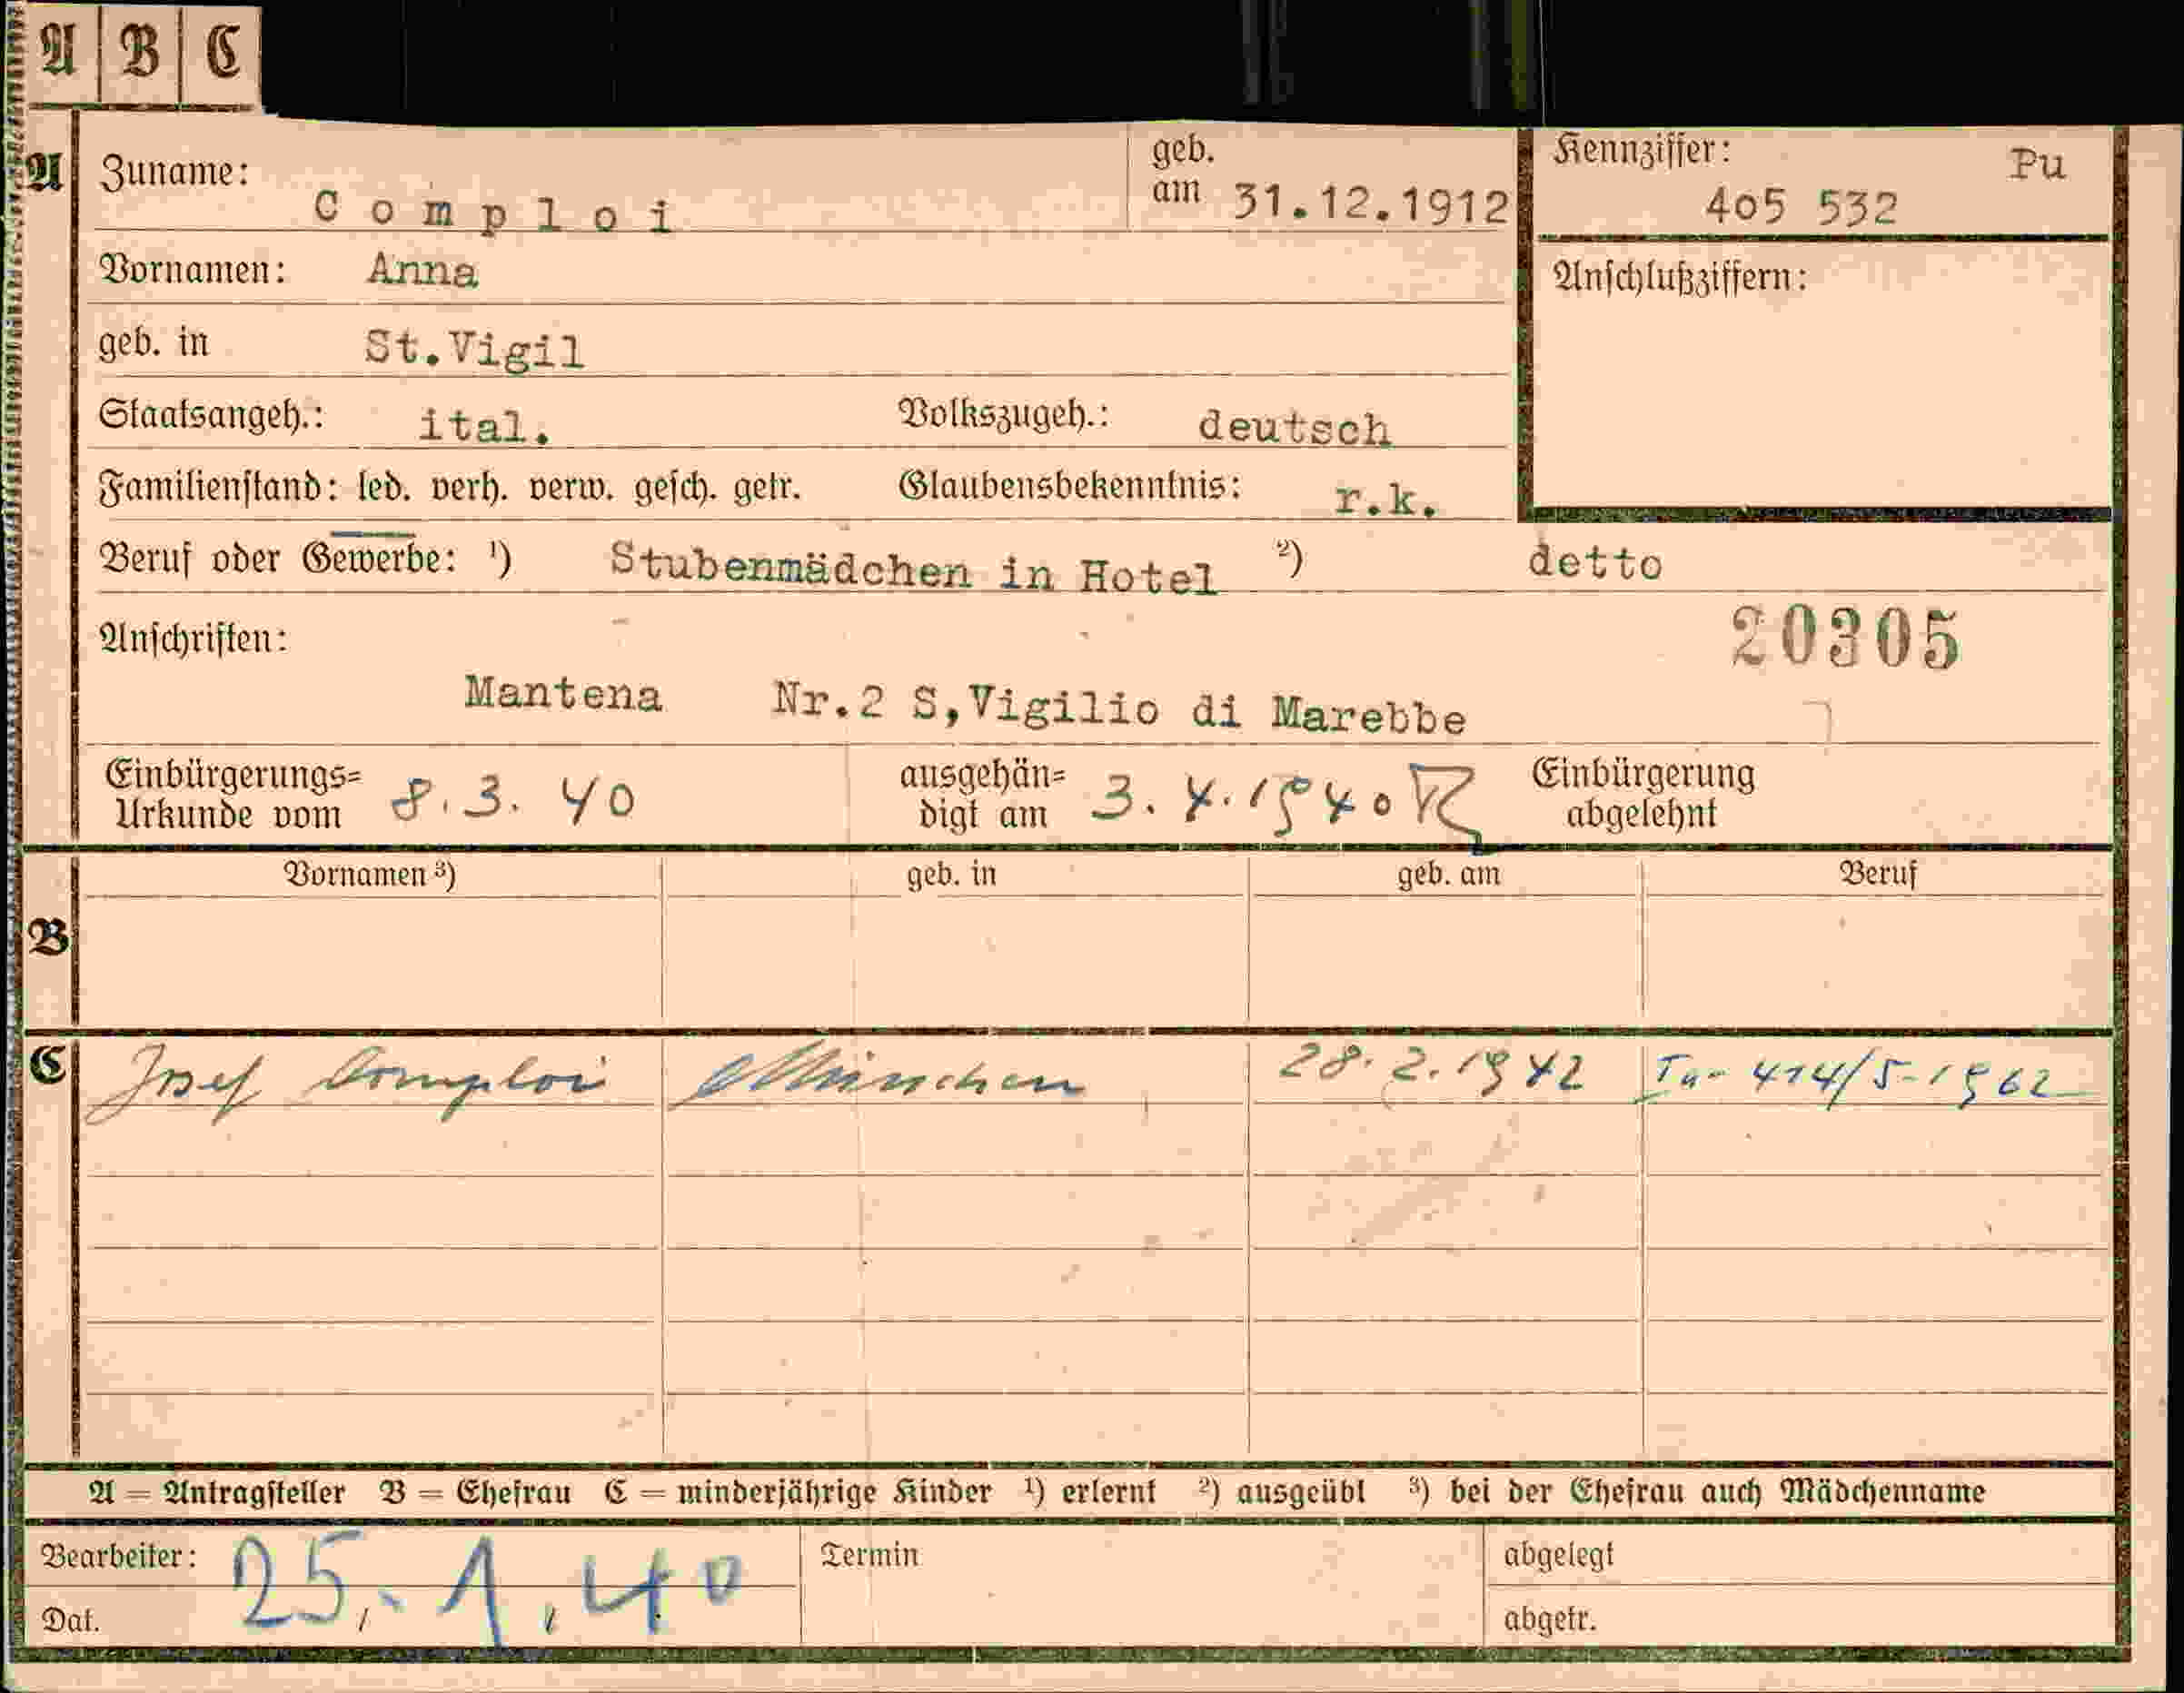 A B C
A Zuname: Comploi geb. am 31.12.1912 Kennziffer: 405 532 Pu
Vornamen: Anna Anschlußziffern:
geb. in St.Vigil
Staatsangeh.: ital. Volkszugeh.: deutsch
Familienstand: led. verh. verw. gesch. getr. Glaubensbekenntnis: r.k.
Beruf oder Gewerbe: ¹) Stubenmädchen in Hotel ²) detto
Anschriften: 20305
Mantena Nr.2 S,Vigilio di Marebbe
Einbürgerungs= ausgehän= Einbürgerung
Urkunde vom 8.3.40 digt am 3.4.1940 abgelehnt
Vornamen ³) geb. in geb. am Beruf
B
C Josef Comploi München 28.2.1942 414/5-1962
A = Antragsteller B = Ehefrau C = minderjährige Kinder ¹) erlernt ²) ausgeübt ³) bei der Ehefrau auch Mädchenname
Bearbeiter: 25.1.40 Termin abgelegt
Dat. abgetr.